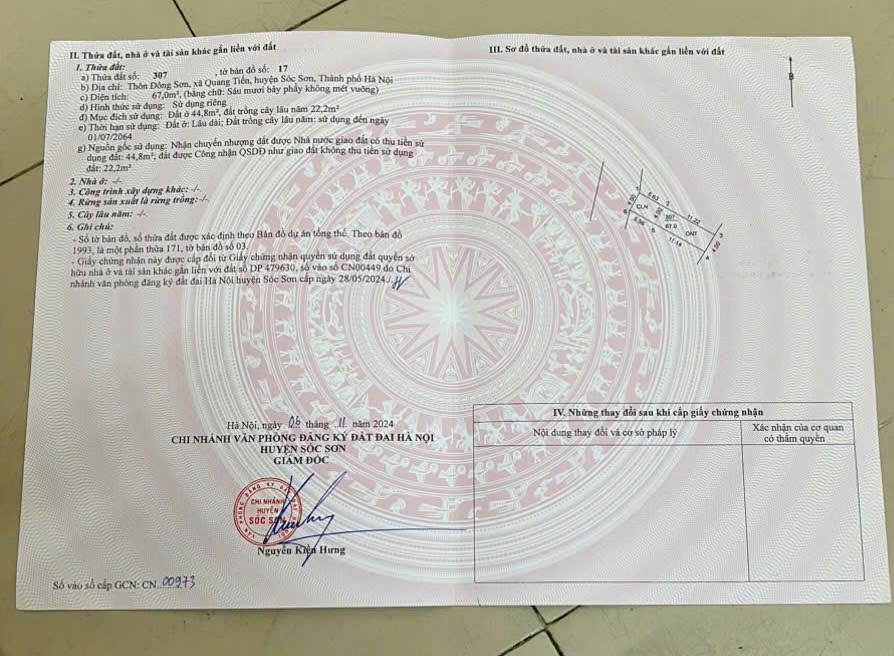 II. Thửa đất, nhà ở và tài sản khác gắn liền với đất
1. Thửa đất:
a) Thửa đất số: 307 , tờ bản đồ số: 17
b) Địa chỉ: Thôn Đông Sơn, xã Quang Tiến, huyện Sóc Sơn, Thành phố Hà Nội
c) Diện tích: 67,0m², (bằng chữ: Sáu mươi bảy phẩy không mét vuông)
d) Hình thức sử dụng: Sử dụng riêng
đ) Mục đích sử dụng: Đất ở 44,8m², đất trồng cây lâu năm 22,2m²
e) Thời hạn sử dụng: Đất ở: Lâu dài; Đất trồng cây lâu năm: sử dụng đến ngày
01/07/2064
g) Nguồn gốc sử dụng: Nhận chuyển nhượng đất được Nhà nước giao đất có thu tiền sử
dụng đất: 44,8m², đất được Công nhận QSDĐ như giao đất không thu tiền sử dụng
đất: 22,2m²
2. Nhà ở: -/-
3. Công trình xây dựng khác: -/-
4. Rừng sản xuất là rừng trồng: -/-
5. Cây lâu năm: -/-
6. Ghi chú:
- Số tờ bản đồ, số thửa đất được xác định theo Bản đồ dự án tổng thể. Theo bản đồ
1993, là một phần thửa 171, tờ bản đồ số 03.
- Giấy chứng nhận này được cấp đổi từ Giấy chứng nhận quyền sử dụng đất quyền sở
hữu nhà ở và tài sản khác gắn liền với đất số DP 479630, số vào sổ CN00449 do Chi
nhánh văn phòng đăng ký đất đai Hà Nội huyện Sóc Sơn cấp ngày 28/05/2024./.
Hà Nội, ngày 06 tháng 11 năm 2024
CHI NHÁNH VĂN PHÒNG ĐĂNG KÝ ĐẤT ĐAI HÀ NỘI
HUYỆN SÓC SƠN
GIÁM ĐỐC
CHI NHÁNH
HUYỆN
SÓC SƠN
Nguyễn Kiên Hưng
Số vào sổ cấp GCN: CN. 00973
III. Sơ đồ thửa đất, nhà ở và tài sản khác gắn liền với đất
B
1
5.63
2
11.22
3
4.00
CLN
4.00
307
67.0
ONT
4.00
6
5.56
5
11.14
4
IV. Những thay đổi sau khi cấp giấy chứng nhận
Nội dung thay đổi và cơ sở pháp lý
Xác nhận của cơ quan
có thẩm quyền